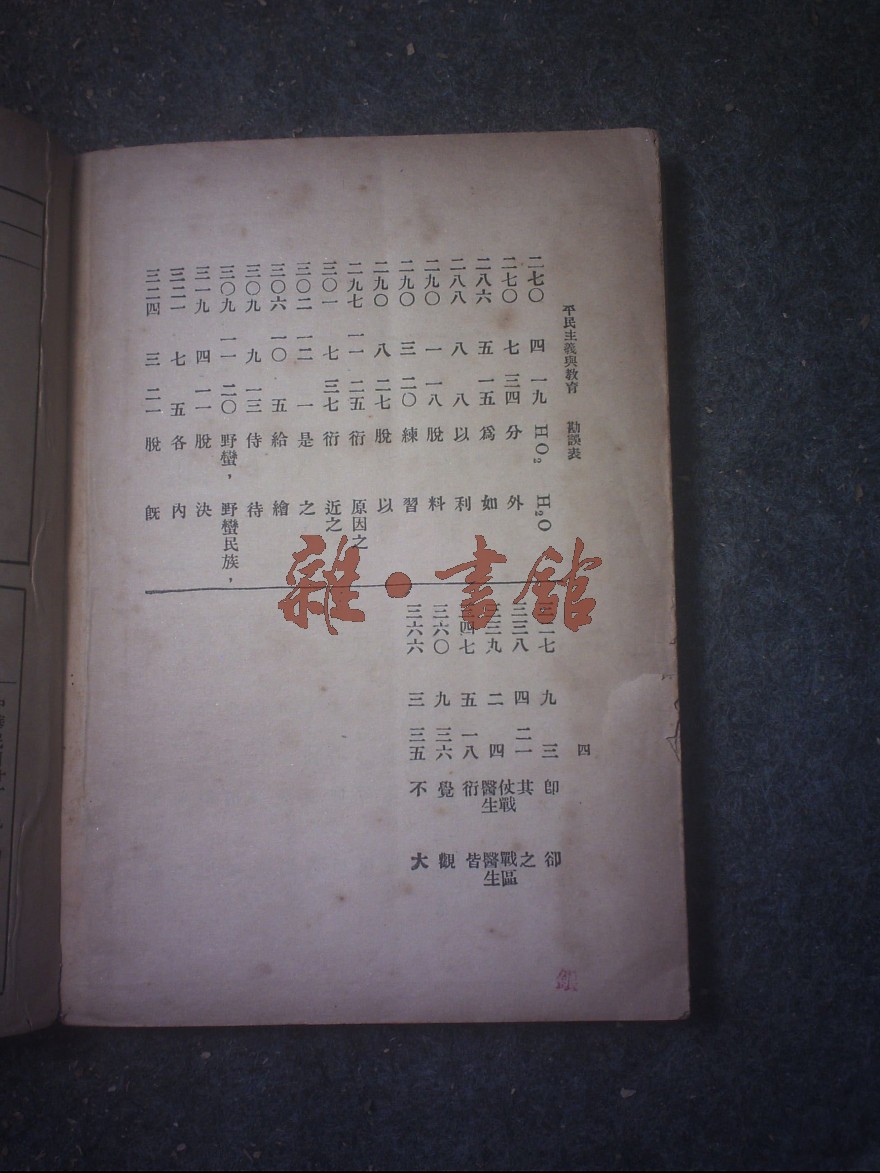 平民主義與教育 勘誤表 四
二七〇 四 一九 HO₂ H₂O
二七〇 七 三四 分 外
二八六 五 一五 爲 如
二八八 八 八 以 利
二九〇 一 一八 脫 料
二九〇 三 二〇 練 習
二九〇 八 二七 脫 以
二九七 一一 二五 衍 原因之
三〇一 七 三七 衍 近之
三〇二 一二 一 是 之
三〇六 一〇 五 給 繪
三〇九 九 一三 侍 待
三〇九 一一 二〇 野蠻， 野蠻民族，
三一九 四 一一 脫 決
三二一 七 五 各 內
三二四 三 二一 脫 旣
九 三 卽 卻
三三八 四 二一 其 之
三三九 二 四 仗戰醫生 戰區醫生
三四七 五 一八 衍 皆
三六〇 九 三六 覺 觀
三六六 三 三五 不 大
雜·書館